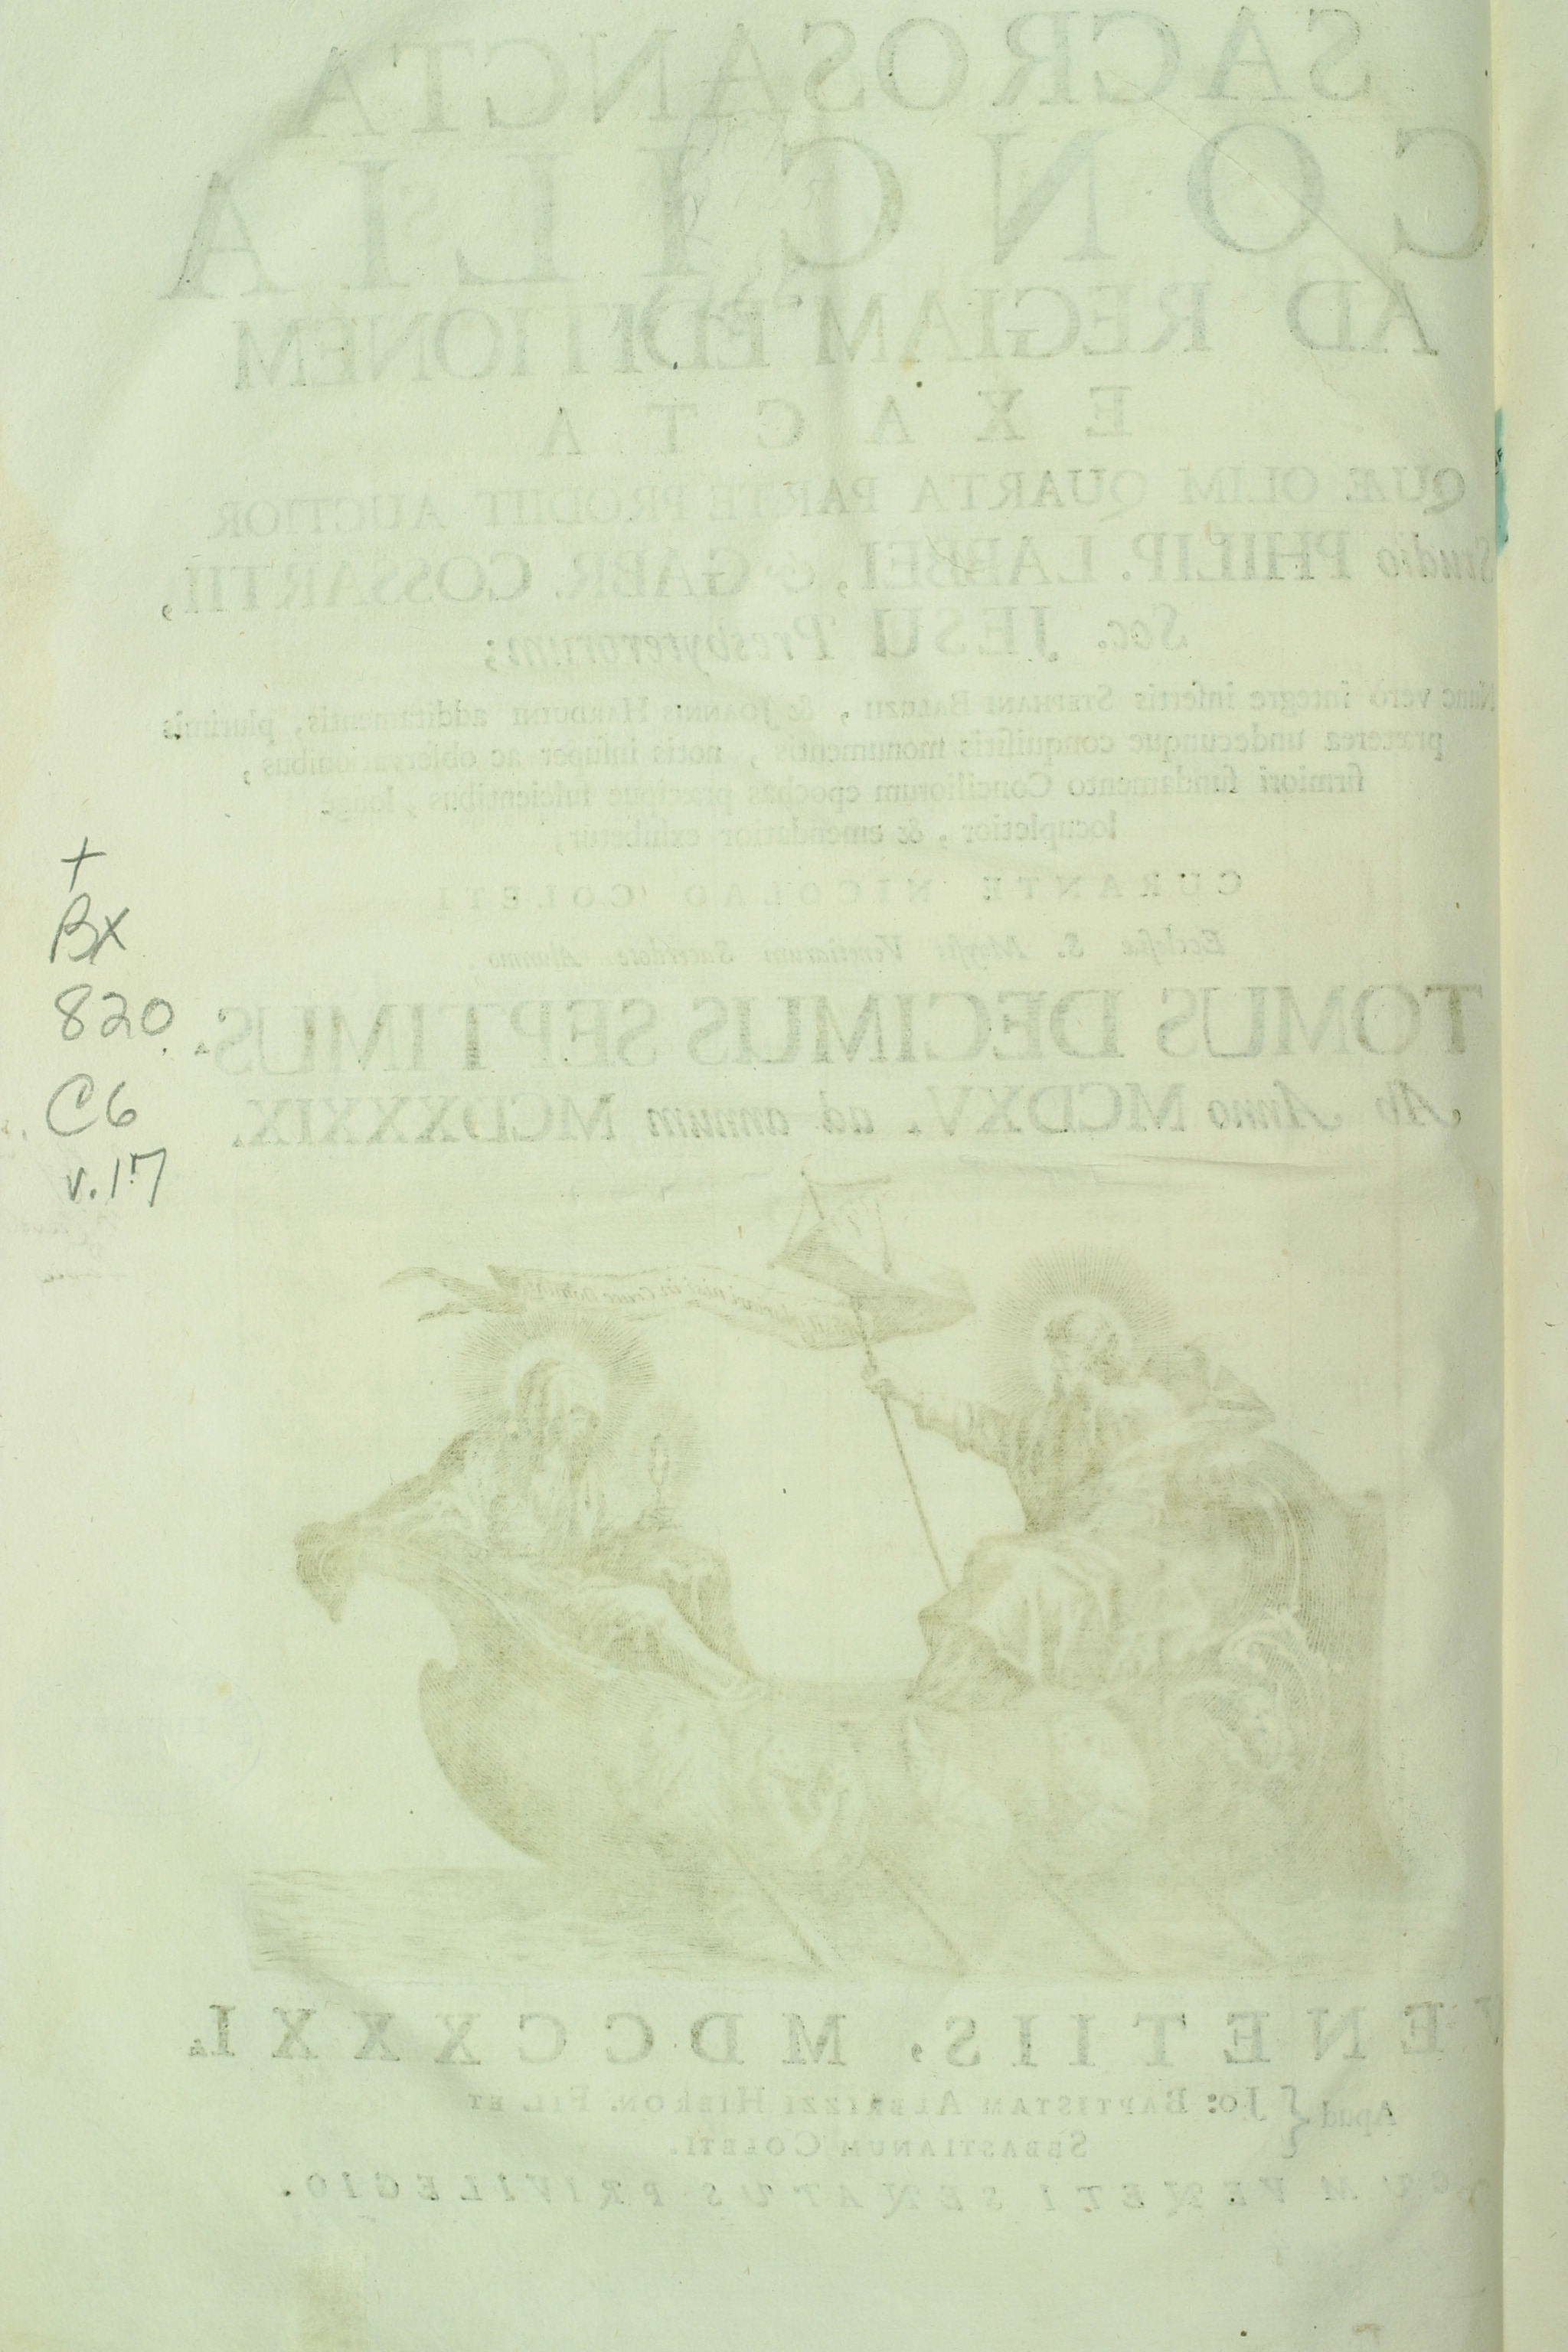 SACROSANCTA
CONCILIA
AD REGIAM EDITIONEM
EXACTA
QUÆ OLIM QUARTA PARTE PRODIIT AUCTIOR
Studio PHILIP. LABBEI, & GABR. COSSARTII,
Soc. JESU Presbyterorum;
Nunc verò integre insertis STEPHANI BALUZII, & JOANNIS HARDUINI additamentis, plurimis
præterea undecunque conquisitis monumentis, notis insuper ac observationibus,
firmiori fundamento Conciliorum epochas præcipue fulcientibus, longe
locupletior, & emendatior exhibetur,
CURANTE NICOLAO COLETI
Ecclesiæ S. Moysis Venetiarum Sacerdote Alumno.
TOMUS DECIMUS SEPTIMUS.
Ab Anno MCDXV. ad annum MCDXXXXIX.
+
BX
820
C6
v.17
nisi in Cruce
VENETIIS, MDCCXXXI.
Apud { Jo: BAPTISTAM ALBRIZZI HIERON. FIL. ET
SEBASTIANUM COLETI.
VENETI SENATUS PRIVILEGIO.